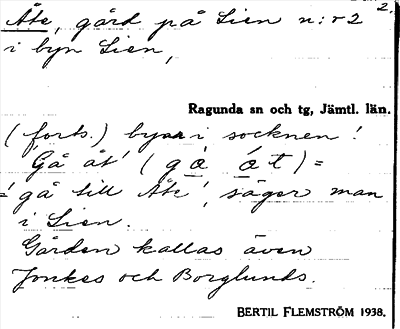 2.
Åte, gård på Lien n:r 2
i byn Lien,
Ragunda sn och tg, Jämtl. län.
(forts.) byar i socknen!
'Gå åt' (gå åt) =
= 'gå till Åte', säger man
i Lien.
Gården kallas även
Jonkes och Borglunds.
BERTIL FLEMSTRÖM 1938.